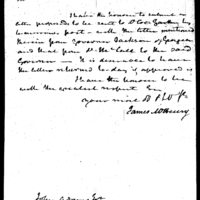 I have the honour to submit a
letter proposed to be sent to by
tomorrows post with the letter mentioned
therein from Governor Jackson of Georgia
and that from to the said
Governor — It is desirable to have
the letters returned to day if approved of
I have the honour to be
with the greatest respect Sir,
your most
James McHenry